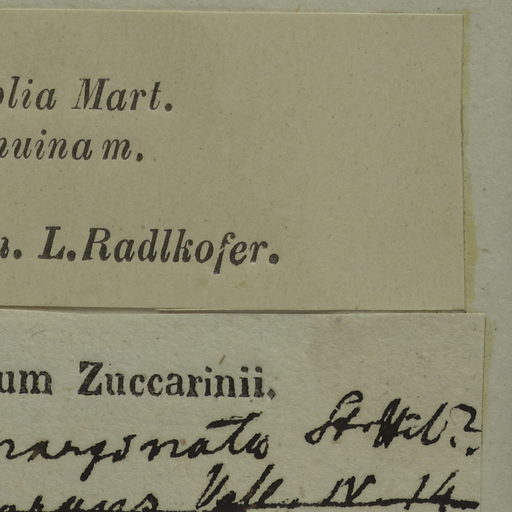 olia Mart.
nuinam.
n. L. Radlkofer.
um Zuccarinii.
marginata St. Hil?
Vell. IV. 14